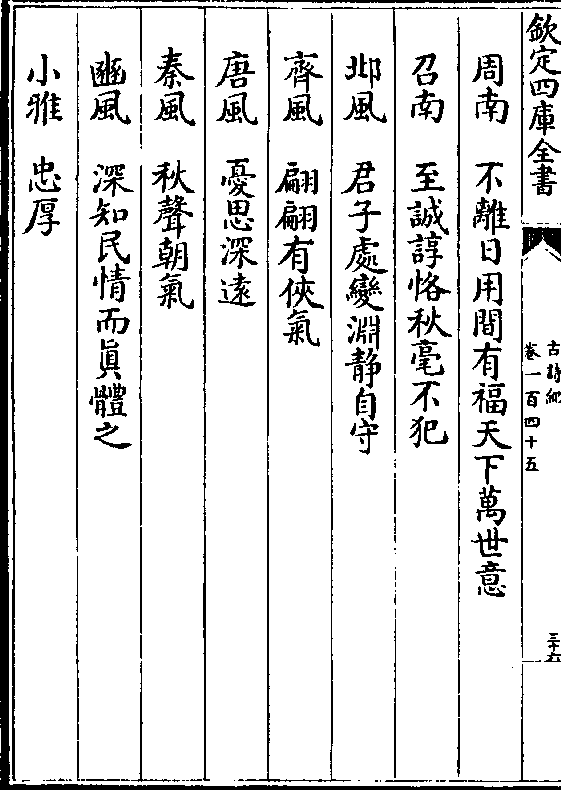 欽定四庫全書
古詩紀
卷一百四十五
三十六
周南　不離日用間有福天下萬世意
召南　至誠諄恪秋毫不犯
邶風　君子處變淵静自守
齊風　翩翩有俠氣
唐風　憂思深遠
秦風　秋聲朝氣
豳風　深知民情而眞體之
小雅　忠厚